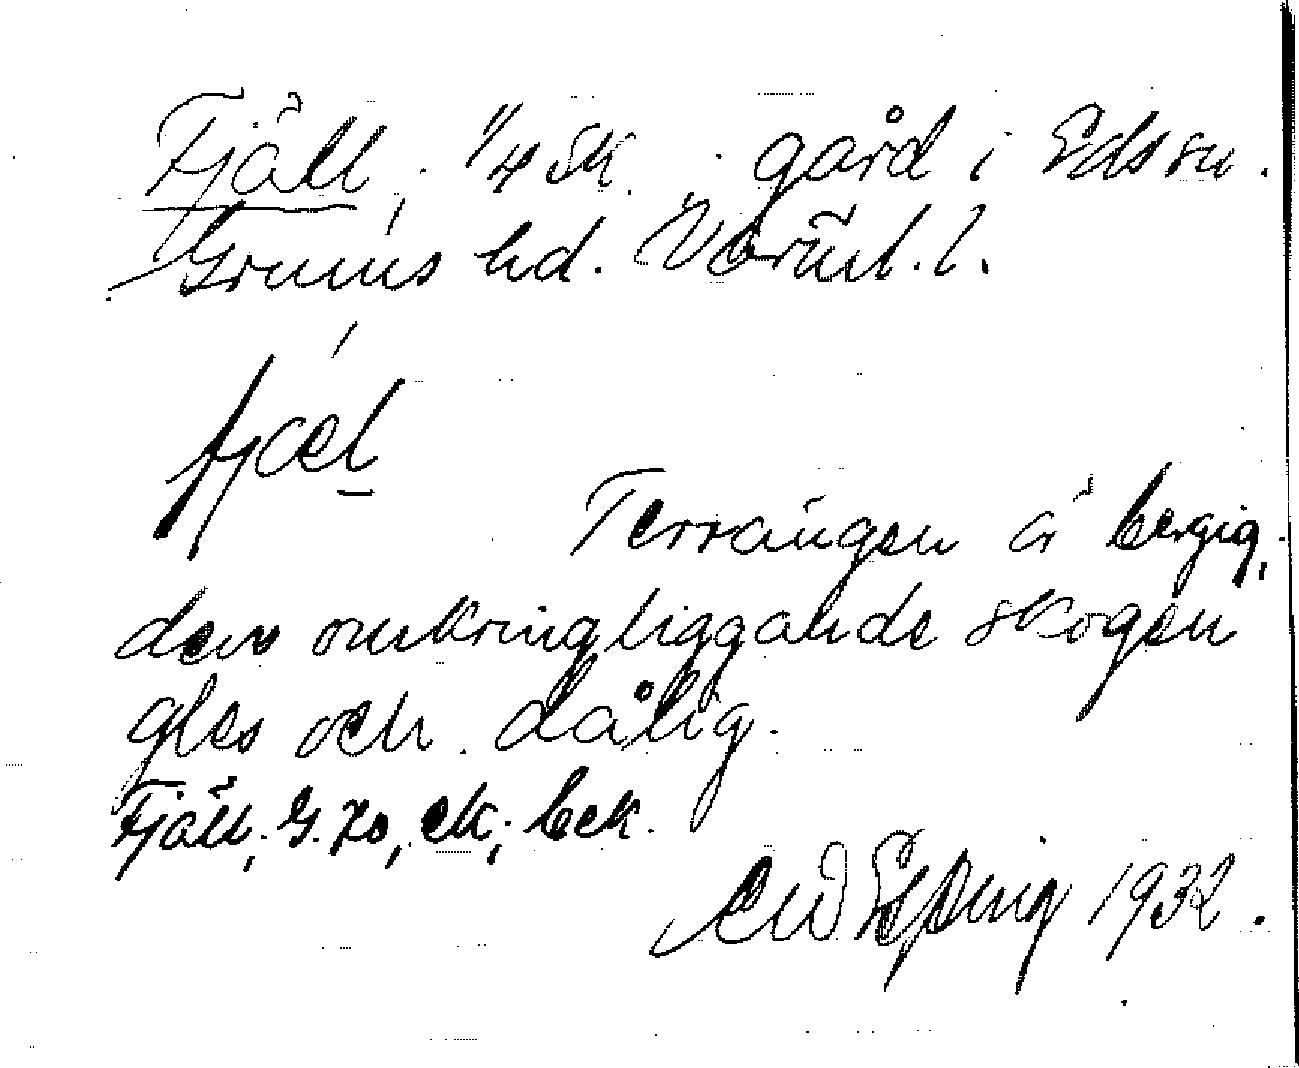 Fjäll, 1/4 sk. gård i Eds sn.
Grums hd. Värml. l.
fjæl
Terrängen är bergig,
den omkringliggande skogen
gles och dålig.
Fjäll, G. Ko, ek, bek.
1932.